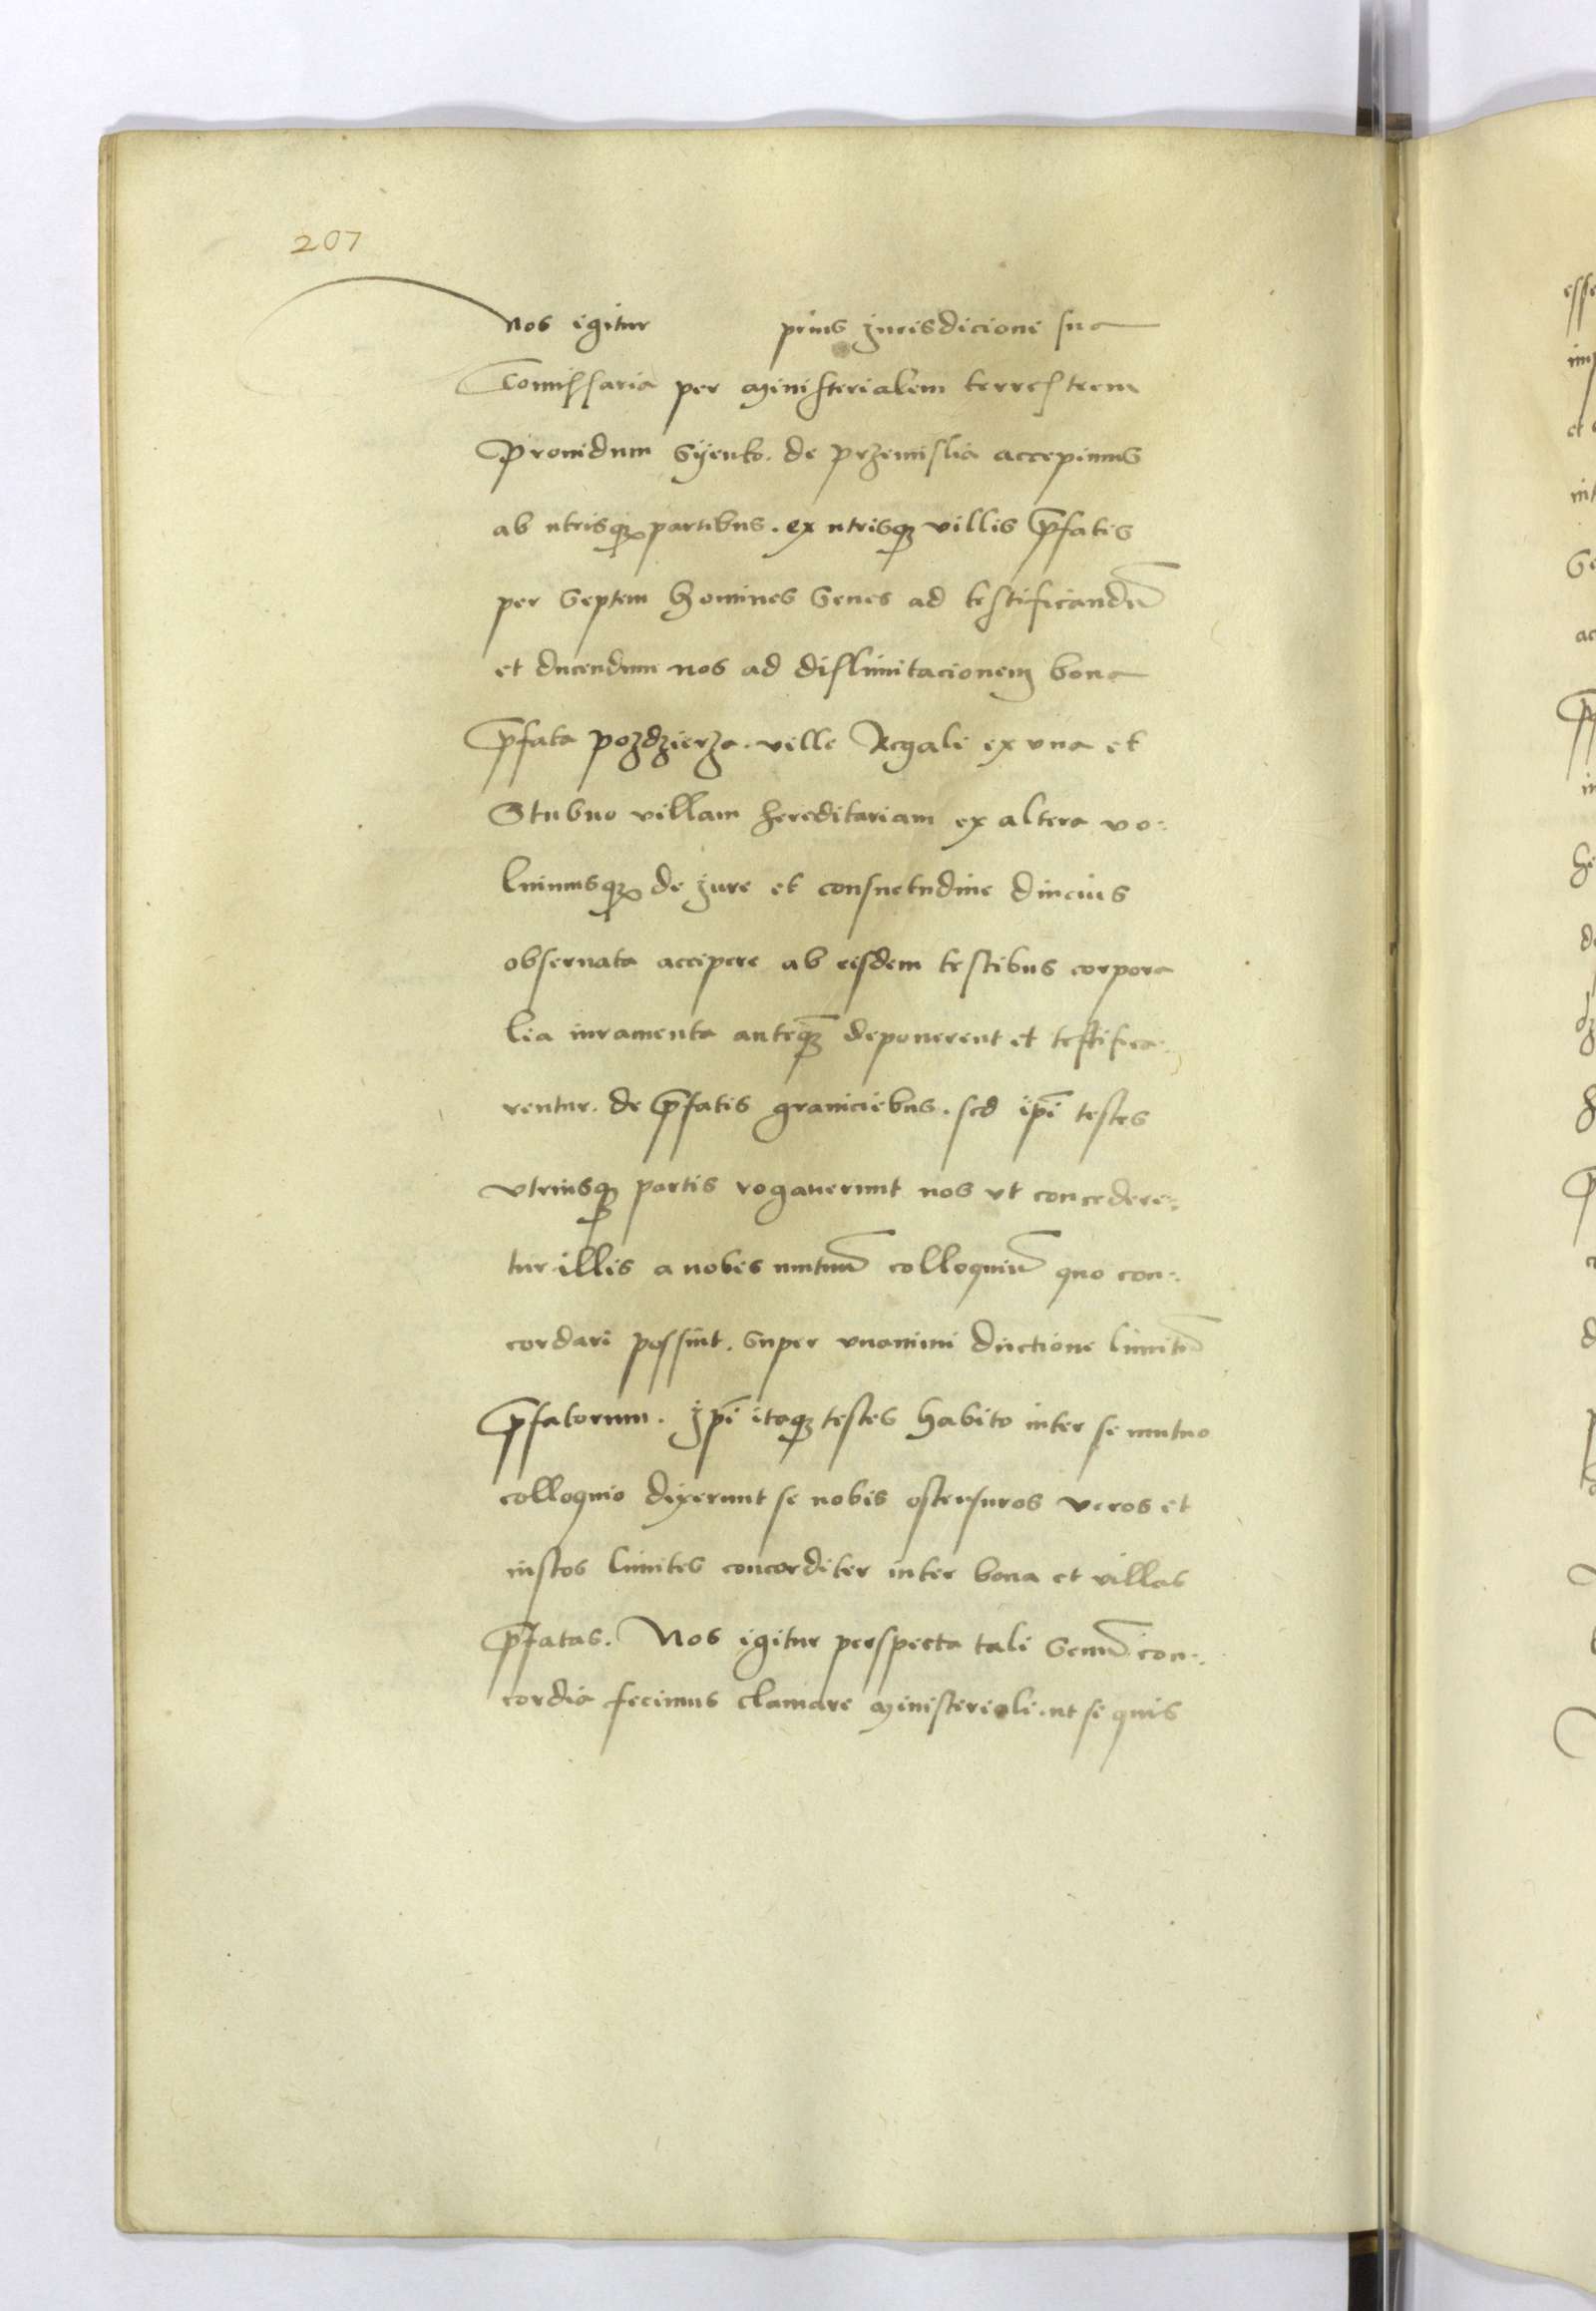 207
nos igitur prius jurisdicioni sua
Comissaria per Ministerialem terrestrem
Providum Syenko. de przemislia accepimus
ab utrisq; partibus. ex utrisq; villis p̄fatis
per septem homines senes ad testificandū
et ducendum nos ad dislimitacionem bona
p̄fata pozdzierza. ville Regali ex una et
Stubno villam hereditariam ex altera vo-
luimusq; de jure et consuetudine diucius
observata accipere ab eisdem testibus corpora
lia iuramenta anteq̄; deponerent et testifica-
rentur. de p̄fatis graniciebus. sed ip̄i testes
vtriusq; partis rogauerunt nos vt concedere-
tur illis a nobis mutuū colloquiū quo con-
cordari possint. super vnanimi ductione limitū
p̄fatorum. Jp̄i itaq; testes habito inter se mutuo
colloquio dixerunt se nobis ostensuros veros et
iustos limites concorditer inter bona et villas
p̄fatas. Nos igitur perspecta tali senū con-
cordia fecimus clamare Ministeriali. ut si quis